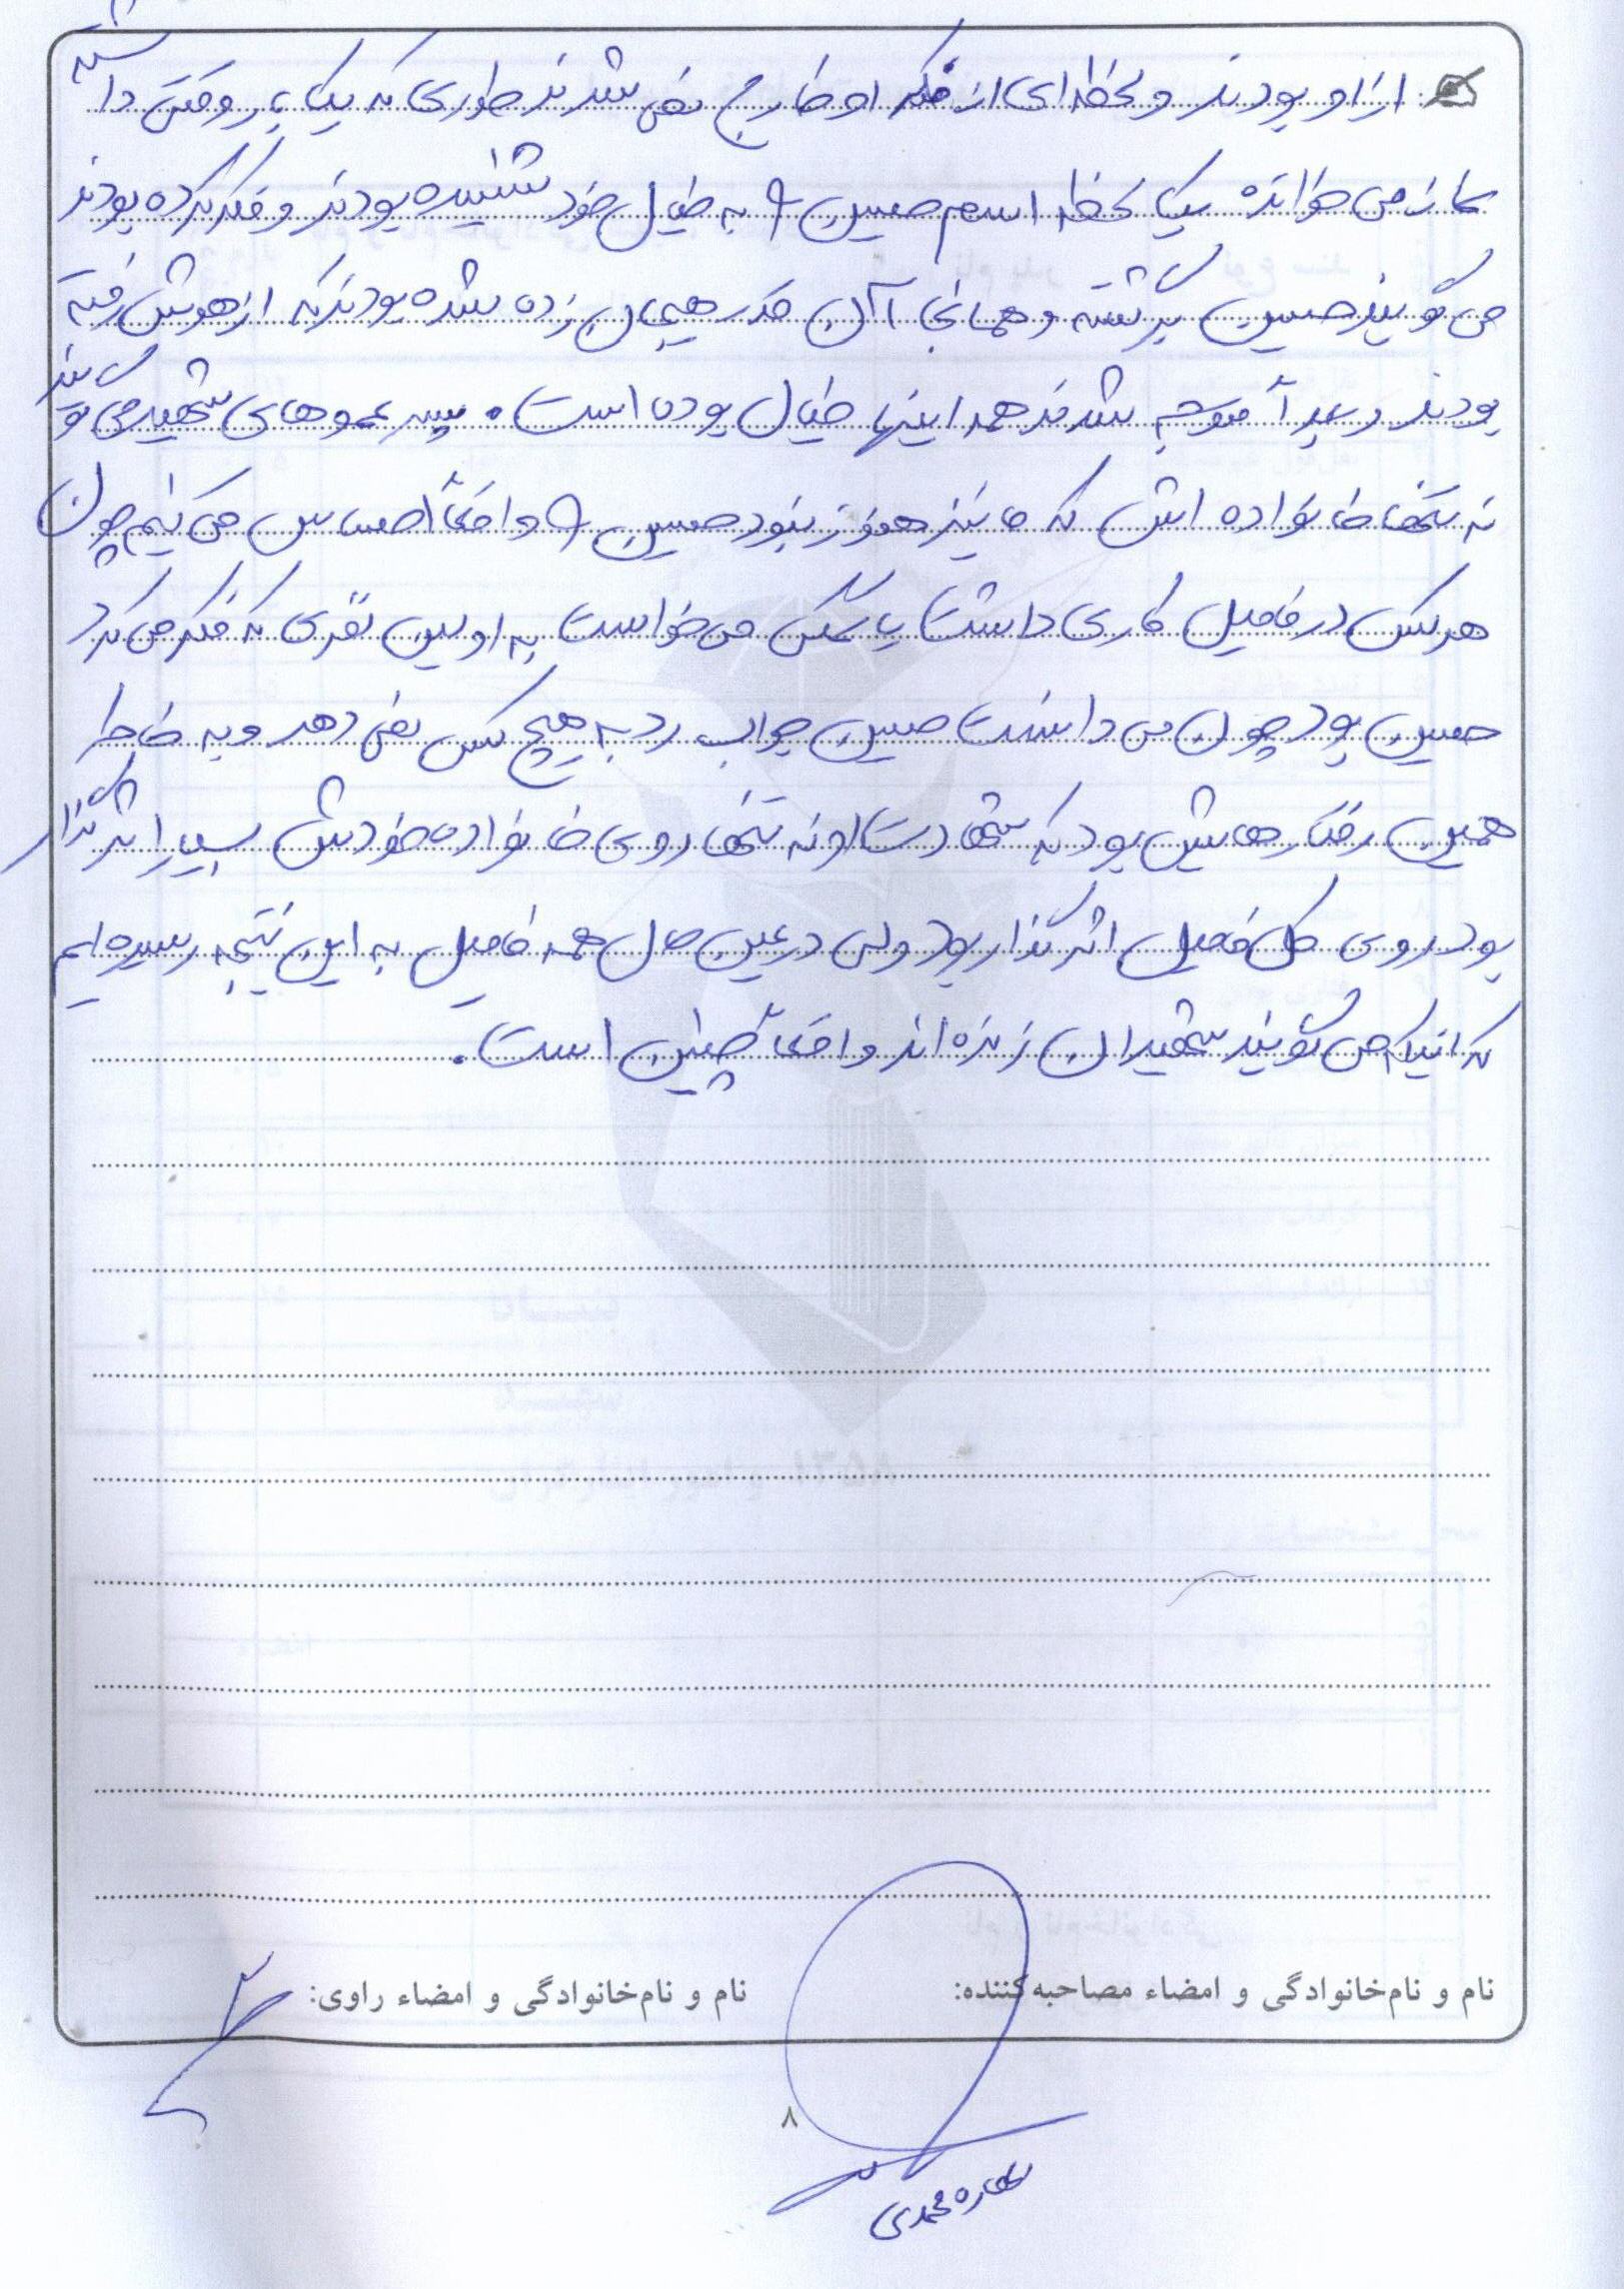 از او بودند و لحظه ای از فکر او خارج نمی شدند طوری که یک بار وقتی داشته
نماز می خوانده یک لحظه اسم حسین را به خیال خود شنیده بودند و فکر کرده بودند
می گویند حسین برگشته و همانجا آن قدر هیجان زده شده بودند که از هوش رفته
بودند و بعداً متوجه شدند همه اینها خیال بوده است. پسر عموهای شهید می گویند
نه تنها خانواده اش که ما نیز هنوز نبود حسین را واقعاً احساس می کنیم چون
هر کس در فامیل کاری داشت یا کمکی می خواست به اولین نفری که فکر می کرد
حسین بود چون می دانست حسین جواب رد به هیچ کس نمی دهد و به خاطر
همین رفتارهایش بود که شهادت او نه تنها روی خانواده خودش بسیار اثرگذار
بود روی کل فامیل اثرگذار بود ولی در عین حال همه فامیل به این نتیجه رسیده ایم
که اینکه می گویند شهیدان زنده اند واقعاً چنین است.
نام و نام‌خانوادگی و امضاء مصاحبه‌کننده: نام و نام‌خانوادگی و امضاء راوی:
۸
محمدی